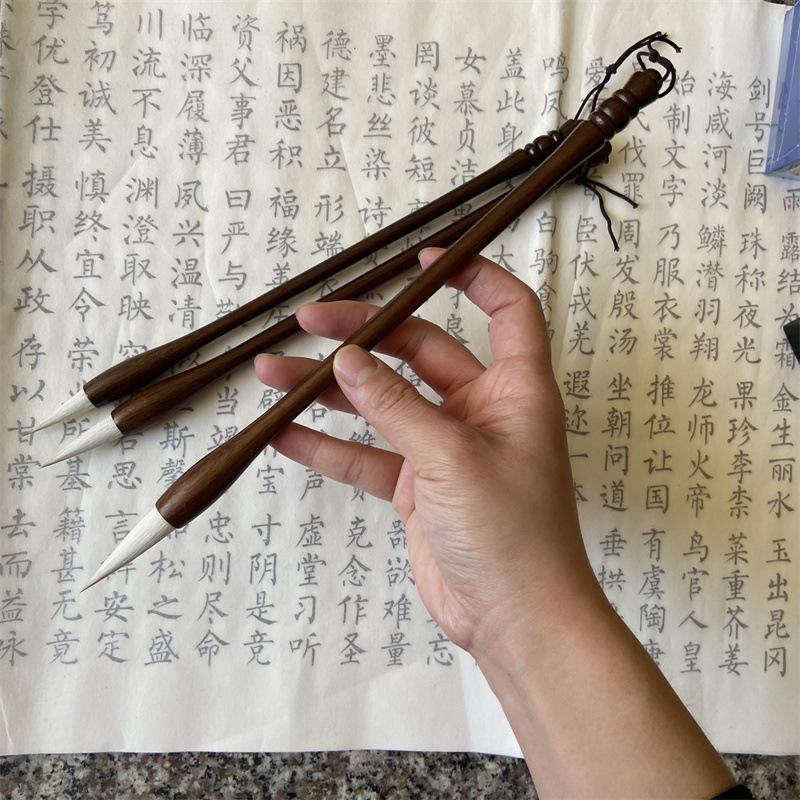 雨露结为霜金生丽水玉出昆冈
剑号巨阙珠称夜光果珍李柰菜重芥姜
海咸河淡鳞潜羽翔龙师火帝鸟官人皇
始制文字乃服衣裳推位让国有虞陶唐
伐罪周发殷汤坐朝问道垂拱
爱臣伏戎羌遐迩一体
鸣凤白驹食
盖此身大
女慕贞洁男才良忘
罔谈彼短信器欲难量
墨悲丝染诗维克念作圣
德建名立形端谷声虚堂习听
祸因恶积福缘善庆璧宝寸阴是竞
资父事君曰严与敬当竭忠则尽命
临深履薄夙兴温清似斯馨松之盛
川流不息渊澄取映容若思言辞安定
笃初诚美慎终宜令荣所基籍甚无竟
学优登仕摄职从政存以甘棠去而益咏